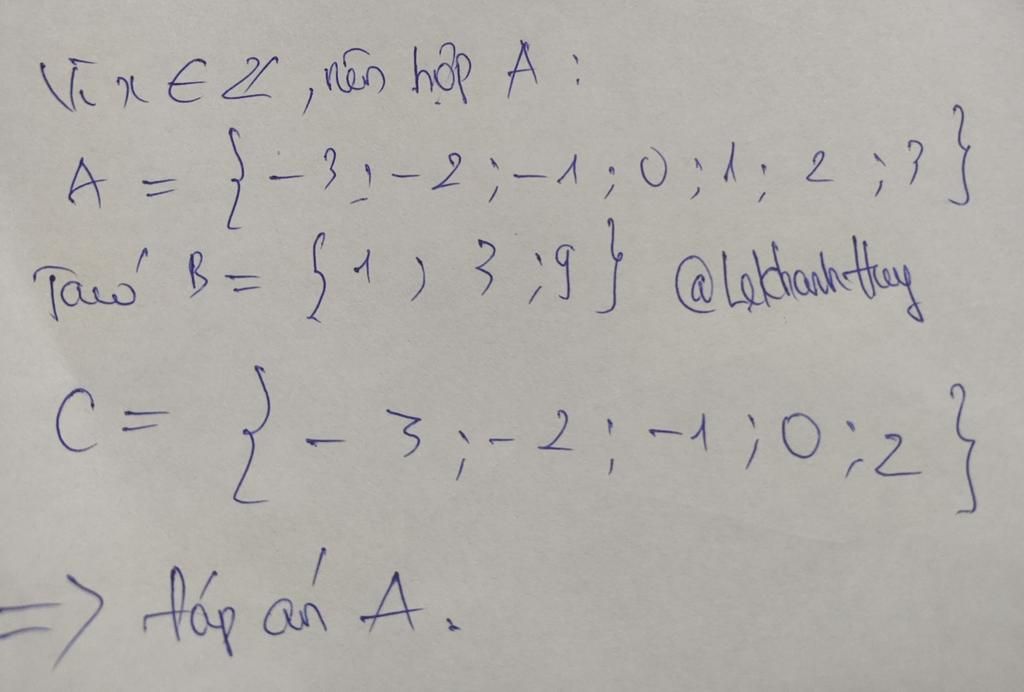 Vì x ∈ Z, nên hợp A :
A = { -3 ; -2 ; -1 ; 0 ; 1 ; 2 ; 3 }
Ta có B = { 1 ; 3 ; 9 } @Lekhanh-Huy
C = { -3 ; -2 ; -1 ; 0 ; 2 }
=> đáp án A.